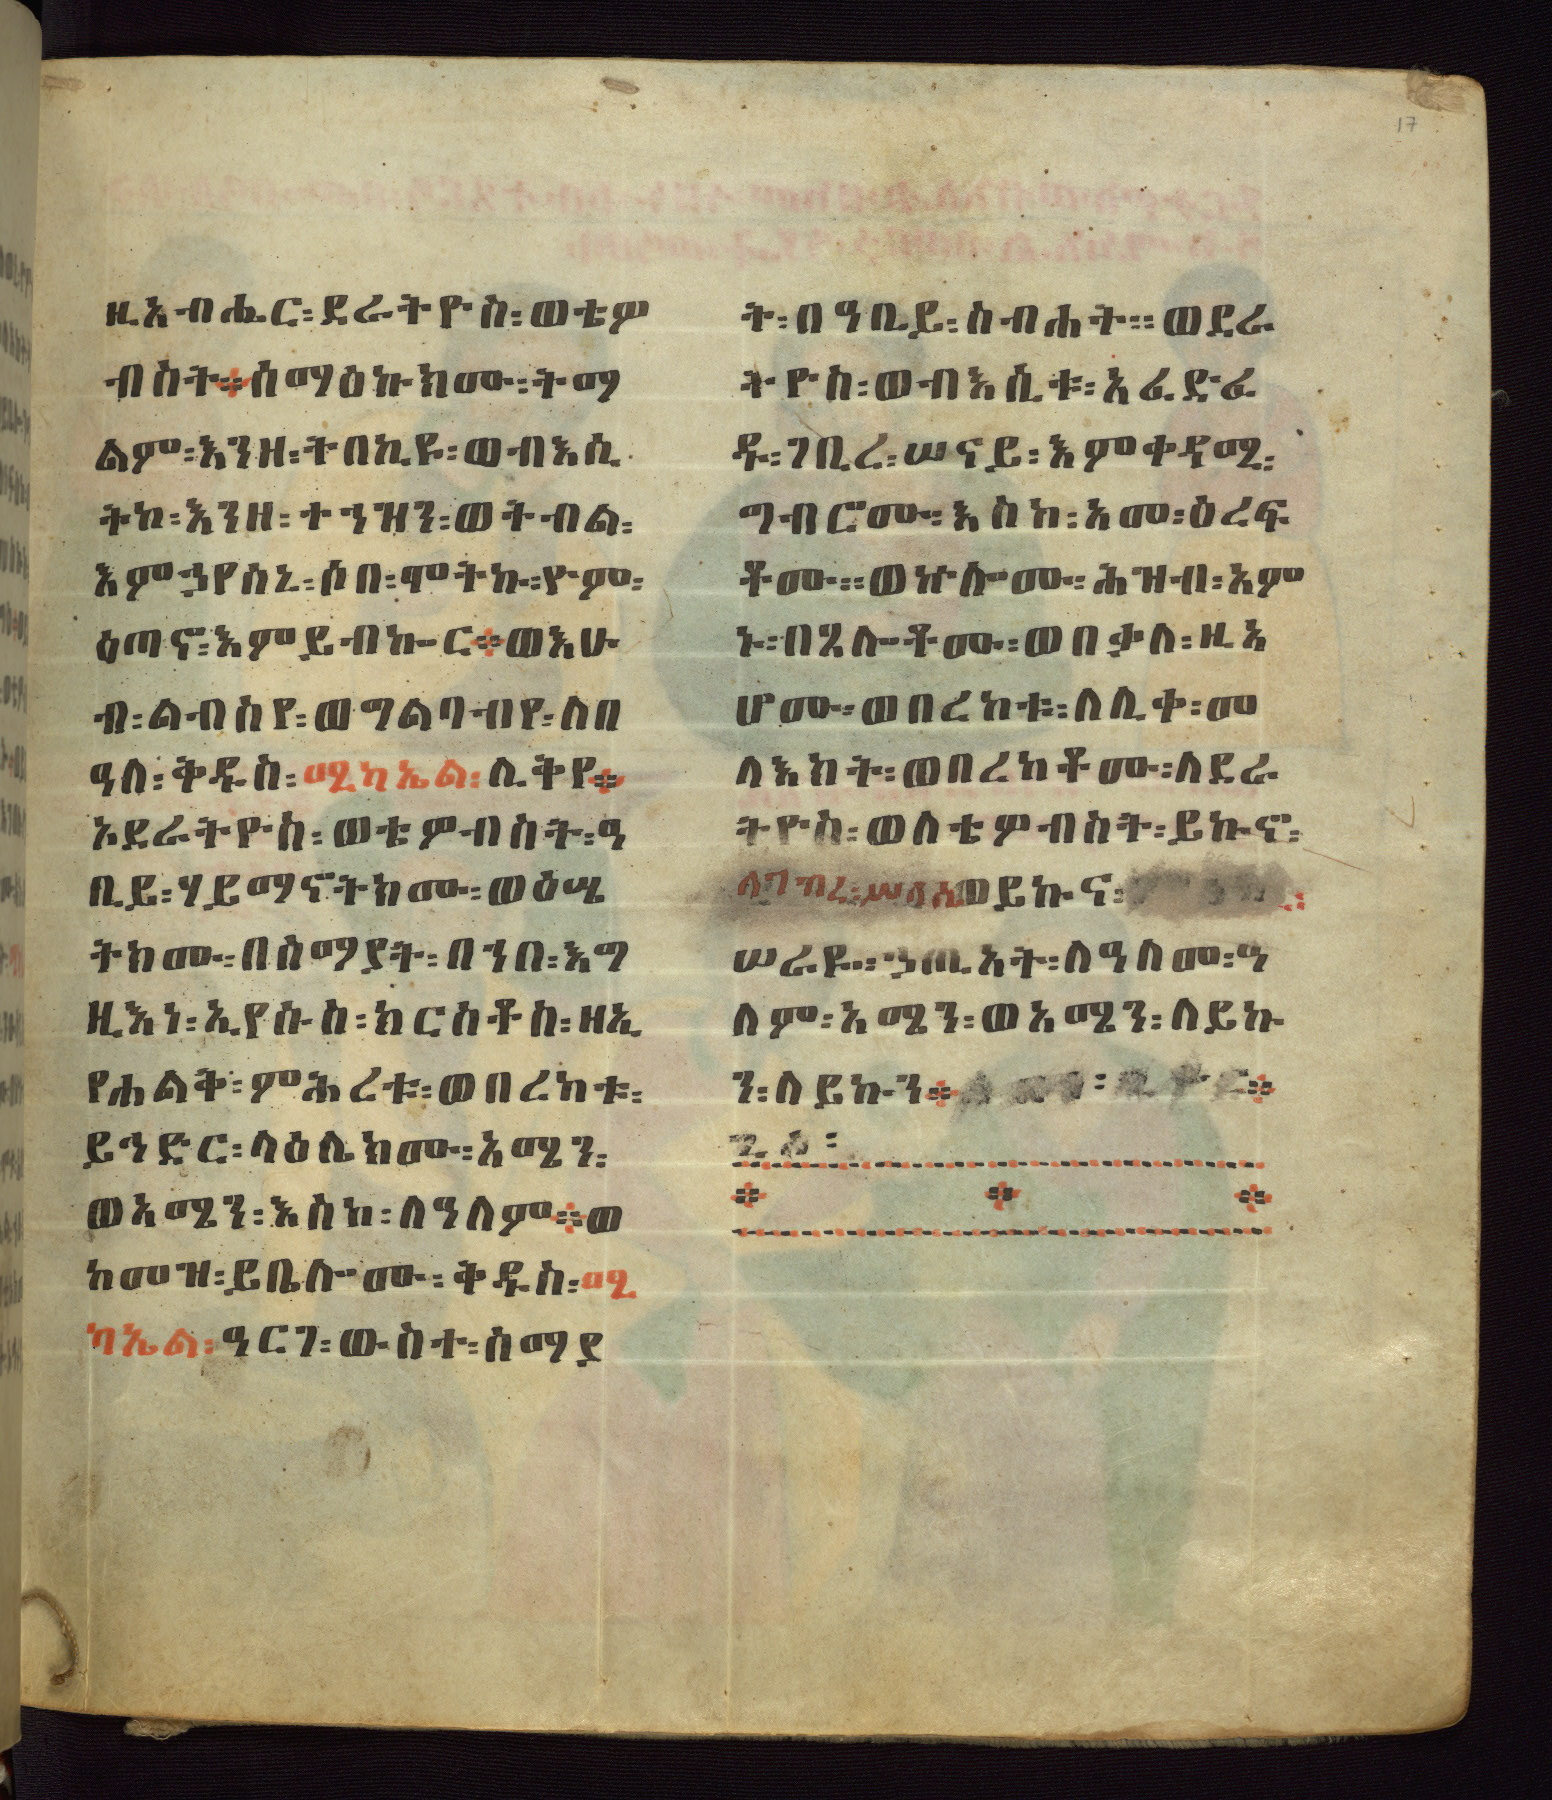 17
ዚአብሔር፡ደራትዮስ፡ወቴዎ
ብስት፨ሰማዕኩክሙ፡ትማ
ልም፡እንዘ፡ትበኪዩ፡ወብእሲ
ትከ፡እንዘ፡ተኀዝን፡ወትብል፡
እምኃየሰኒ፡ሶበ፡ሞትኩ፡ዮም፡
ዕጣኖ፡እምይብኩር፨ወእሁ
ብ፡ልብስየ፡ወግልባብየ፡ለበ
ዓለ፡ቅዱስ፡ሚካኤል፡ሊቅየ፨
ኦደራትዮስ፡ወቴዎብስት፡ዓ
ቢይ፡ሃይማኖትክሙ፡ወዕሤ
ትክሙ፡በሰማያት፡በኀበ፡እግ
ዚእነ፡ኢየሱስ፡ክርስቶስ፡ዘኢ
የሐልቅ፡ምሕረቱ፡ወበረከቱ፡
ይኀድር፡ላዕሌክሙ፡አሜን፡
ወአሜን፡እስከ፡ለዓለም፨ወ
ከመዝ፡ይቤሎሙ፡ቅዱስ፡ሚ
ካኤል፡ዓርገ፡ውስተ፡ሰማያ
ት፡በዓቢይ፡ስብሐት።ወደራ
ትዮስ፡ወብእሲቱ፡አፈድፈ
ዱ፡ገቢረ፡ሠናይ፡እምቀዳሚ፡
ግብሮሙ፡እስከ፡አመ፡ዕረፍ
ቶሙ።ወኵሎሙ፡ሕዝብ፡አም
ኑ፡በጸሎቶሙ፡ወበቃለ፡ዚአ
ሆሙ፡ወበረከቱ፡ለሊቀ፡መ
ላእክት፡ወበረከቶሙ፡ለደራ
ትዮስ፡ወለቴዎብስት፡ይኩኖ፡
ወይኩና፡
ሠራዬ፡ኃጢአት፡ለዓለመ፡ዓ
ለም፡አሜን፡ወአሜን፡ለይኩ
ን፡ለይኩን፨